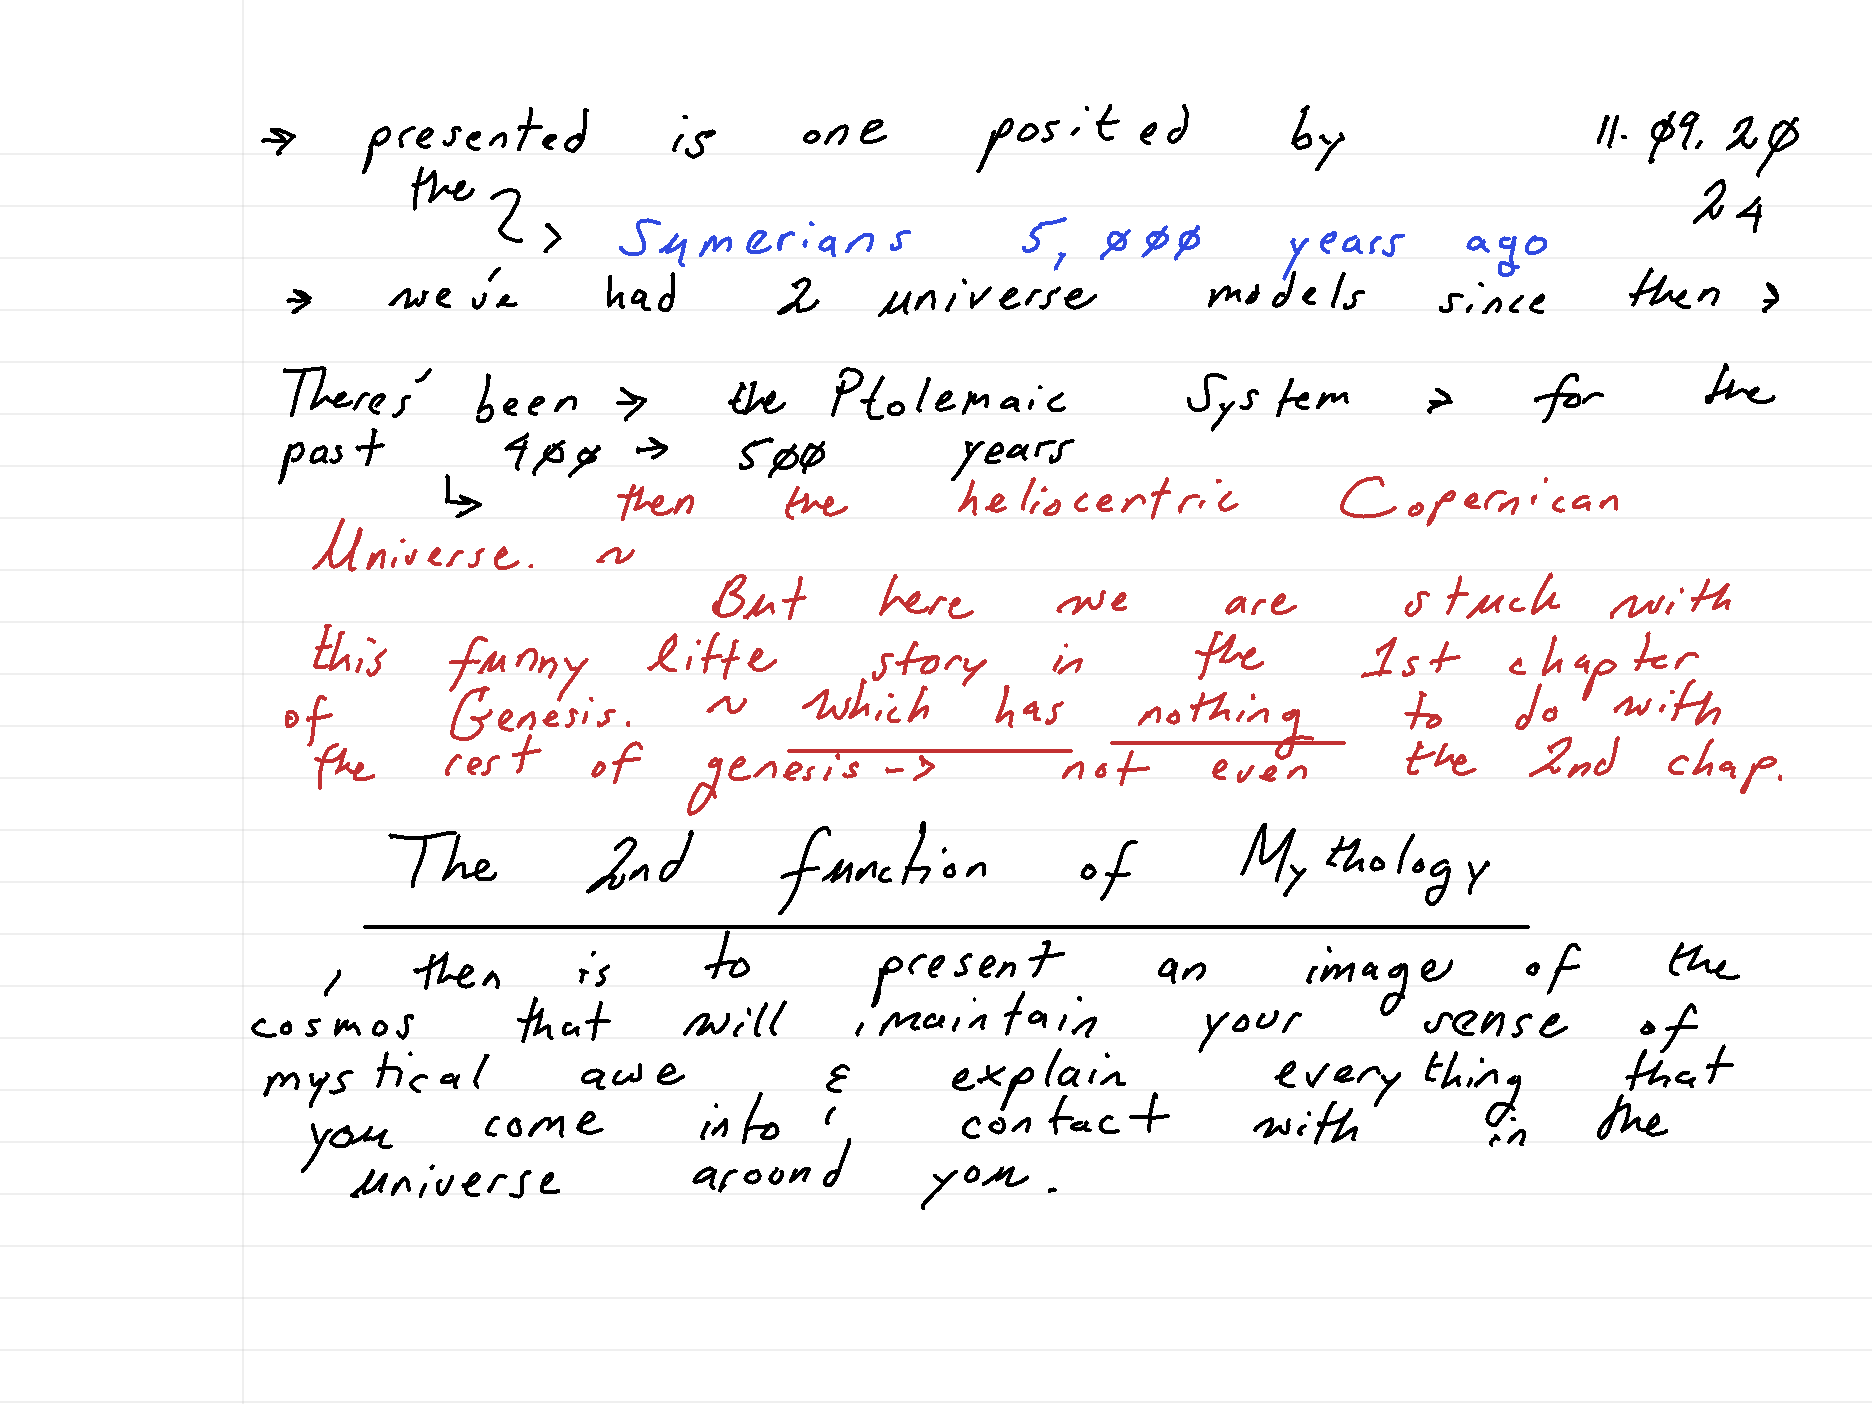 → presented is one posited by 11.09.20
the 24
> Sumerians 5,000 years ago
→ we've had 2 universe models since then >
There's been → the Ptolemaic System → for the
past 400 → 500 years
↳ then the heliocentric Copernican
Universe. ~
But here we are stuck with
this funny little story in the 1st chapter
of Genesis. ~ which has nothing to do with
the rest of genesis -> not even the 2nd chap.
The 2nd function of Mythology
, then is to present an image of the
cosmos that will maintain your sense of
mystical awe & explain everything that
you come into contact with in the
universe around you.